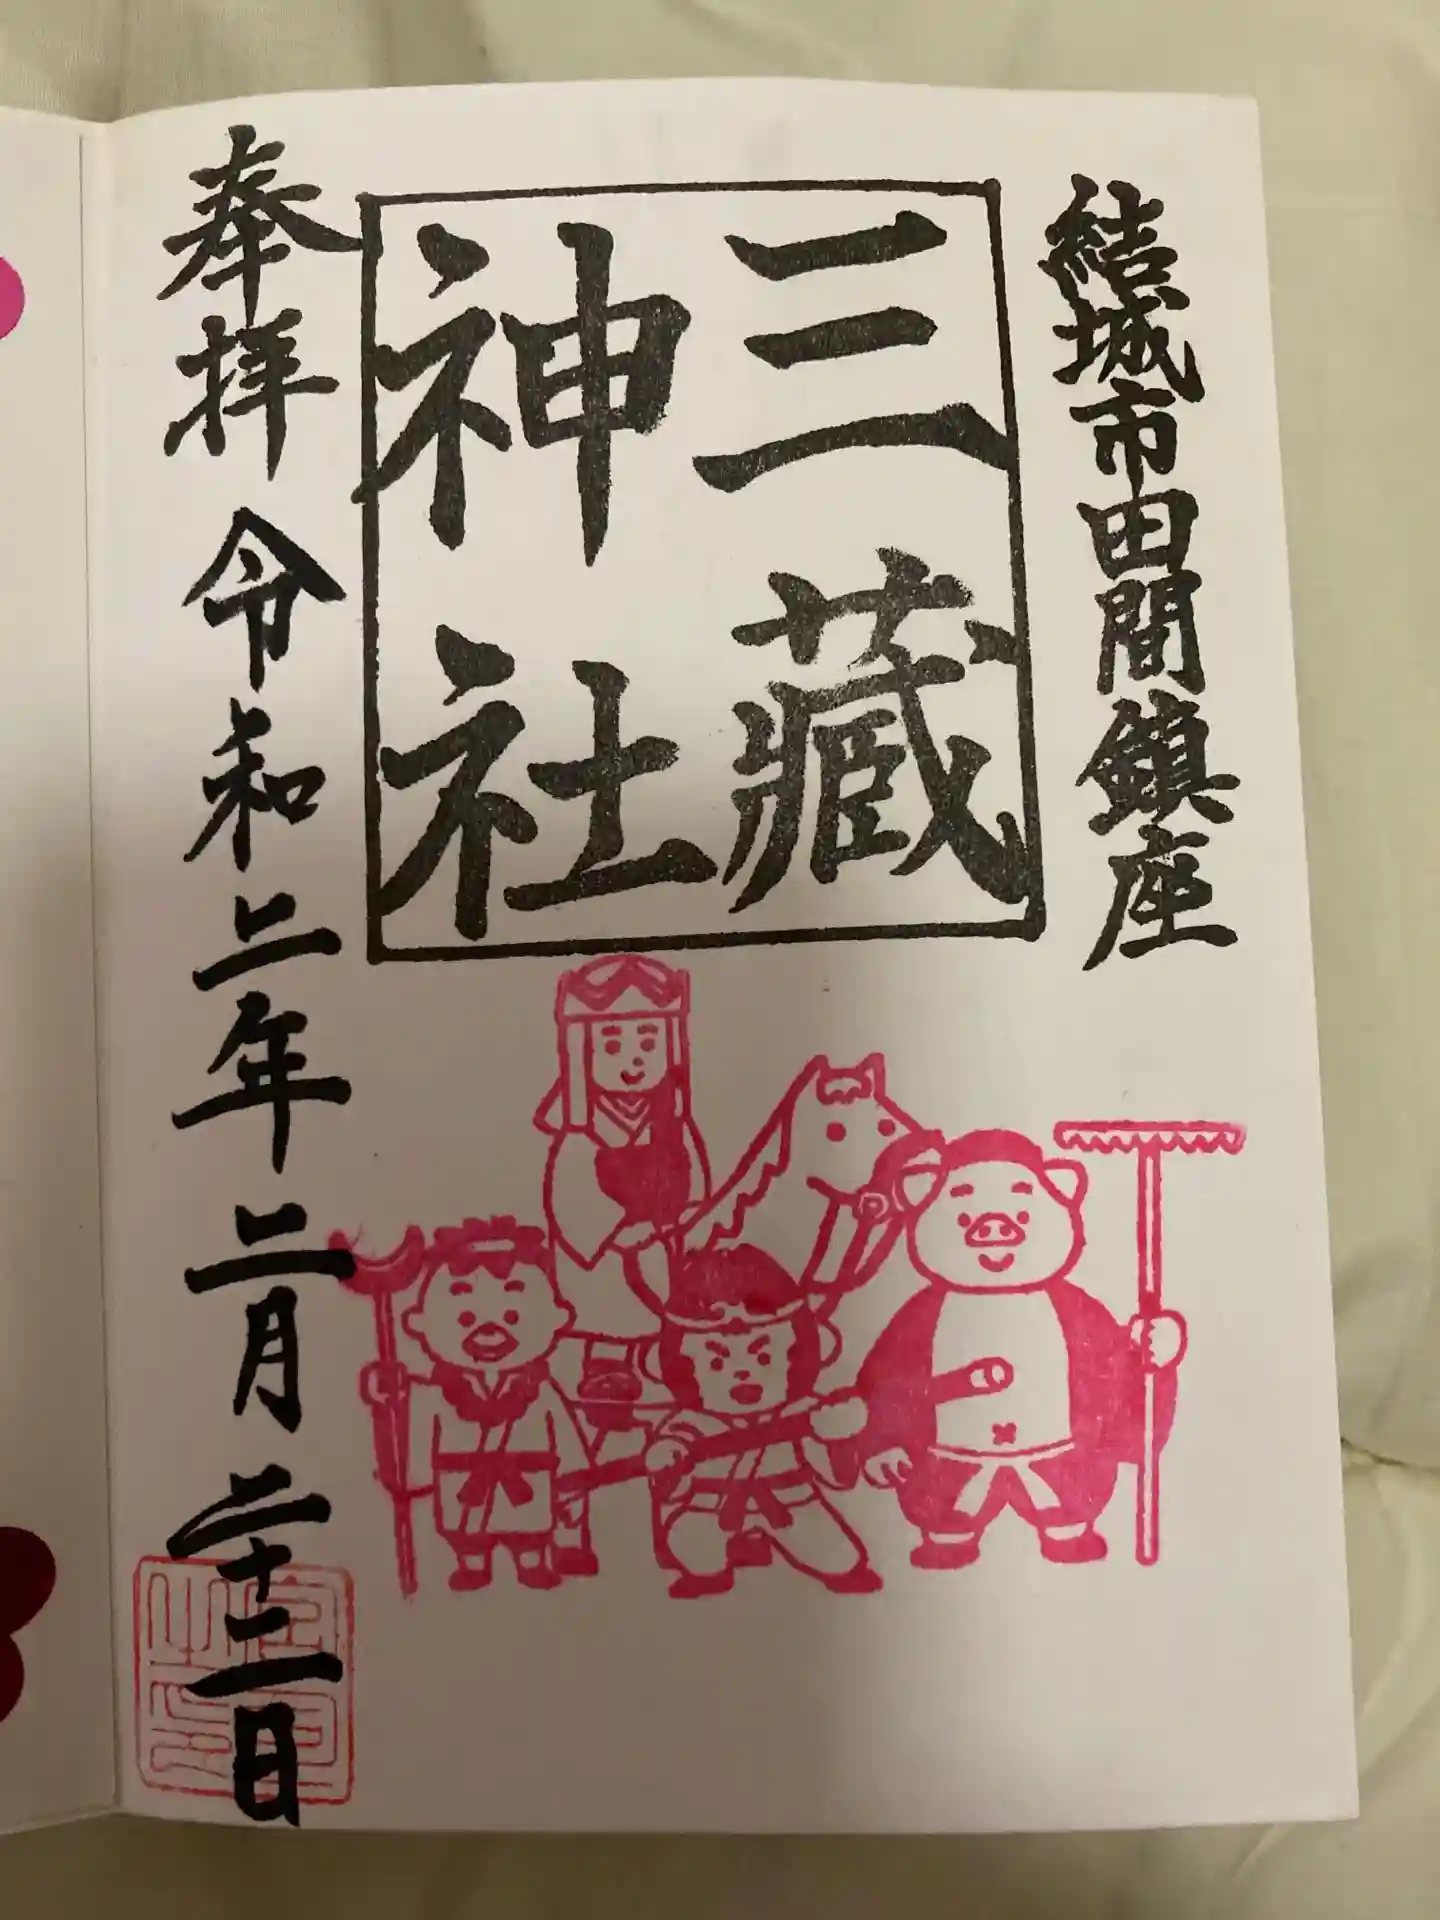 結城市田間鎮座
三藏
神社
奉拜 令和二年二月二十二日